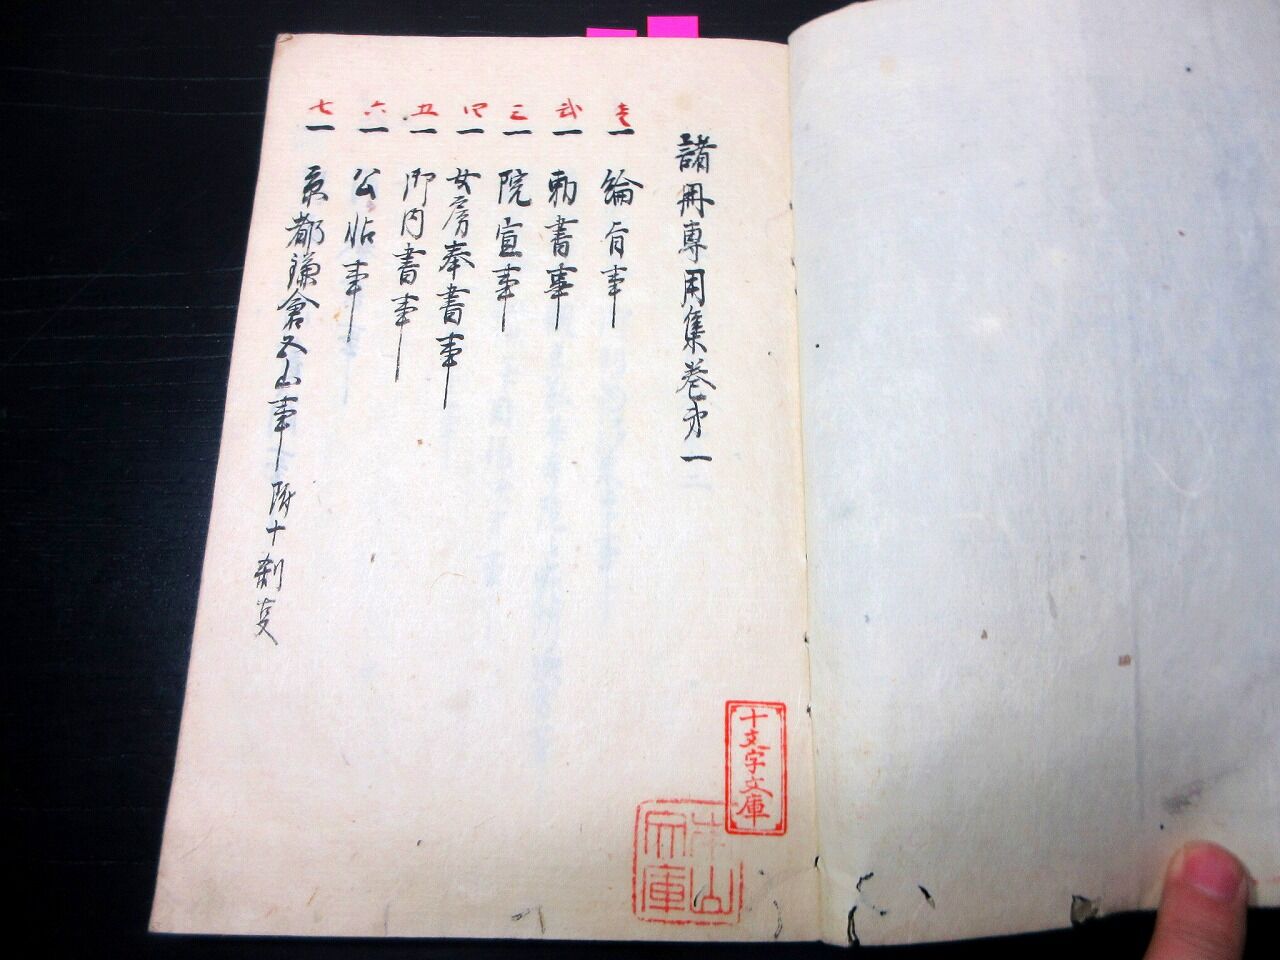 諸冊専用集巻㐧一
壱一 綸旨事
弐一 勅書事
三一 院宣事
四一 女房奉書事
五一 御内書事
六一 公帖事
七一 京都鎌倉五山事 附十刹叓
十文字文庫